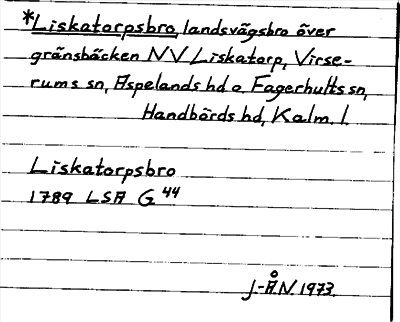 *Liskatorpsbro, landsvägsbro över
gränsbäcken NV Liskatorp, Virse-
rums sn, Aspelands hd o. Fagerhults sn,
Handbörds hd, Kalm. l.
Liskatorpsbro
1789 LSA G 44
J.-Å.N. 1973.